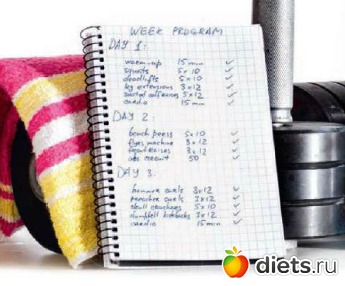 WEEK PROGRAM
DAY 1:
warm-up 15 min ✓
squats 5x10 ✓
deadlifts 5x10 ✓
leg extensions 3x12 ✓
seated calf raises 3x12 ✓
cardio 15 min ✓
DAY 2:
bench press 5x10 ✓
flyes machine 3x12 ✓
raises 3x12 ✓
abs circuit 50 ✓
DAY 3:
hammer curls 3x12 ✓
preacher curls 3x12 ✓
skull crushers 5x10 ✓
dumbbell kickbacks 3x12 ✓
cardio 15 min ✓
diets.ru